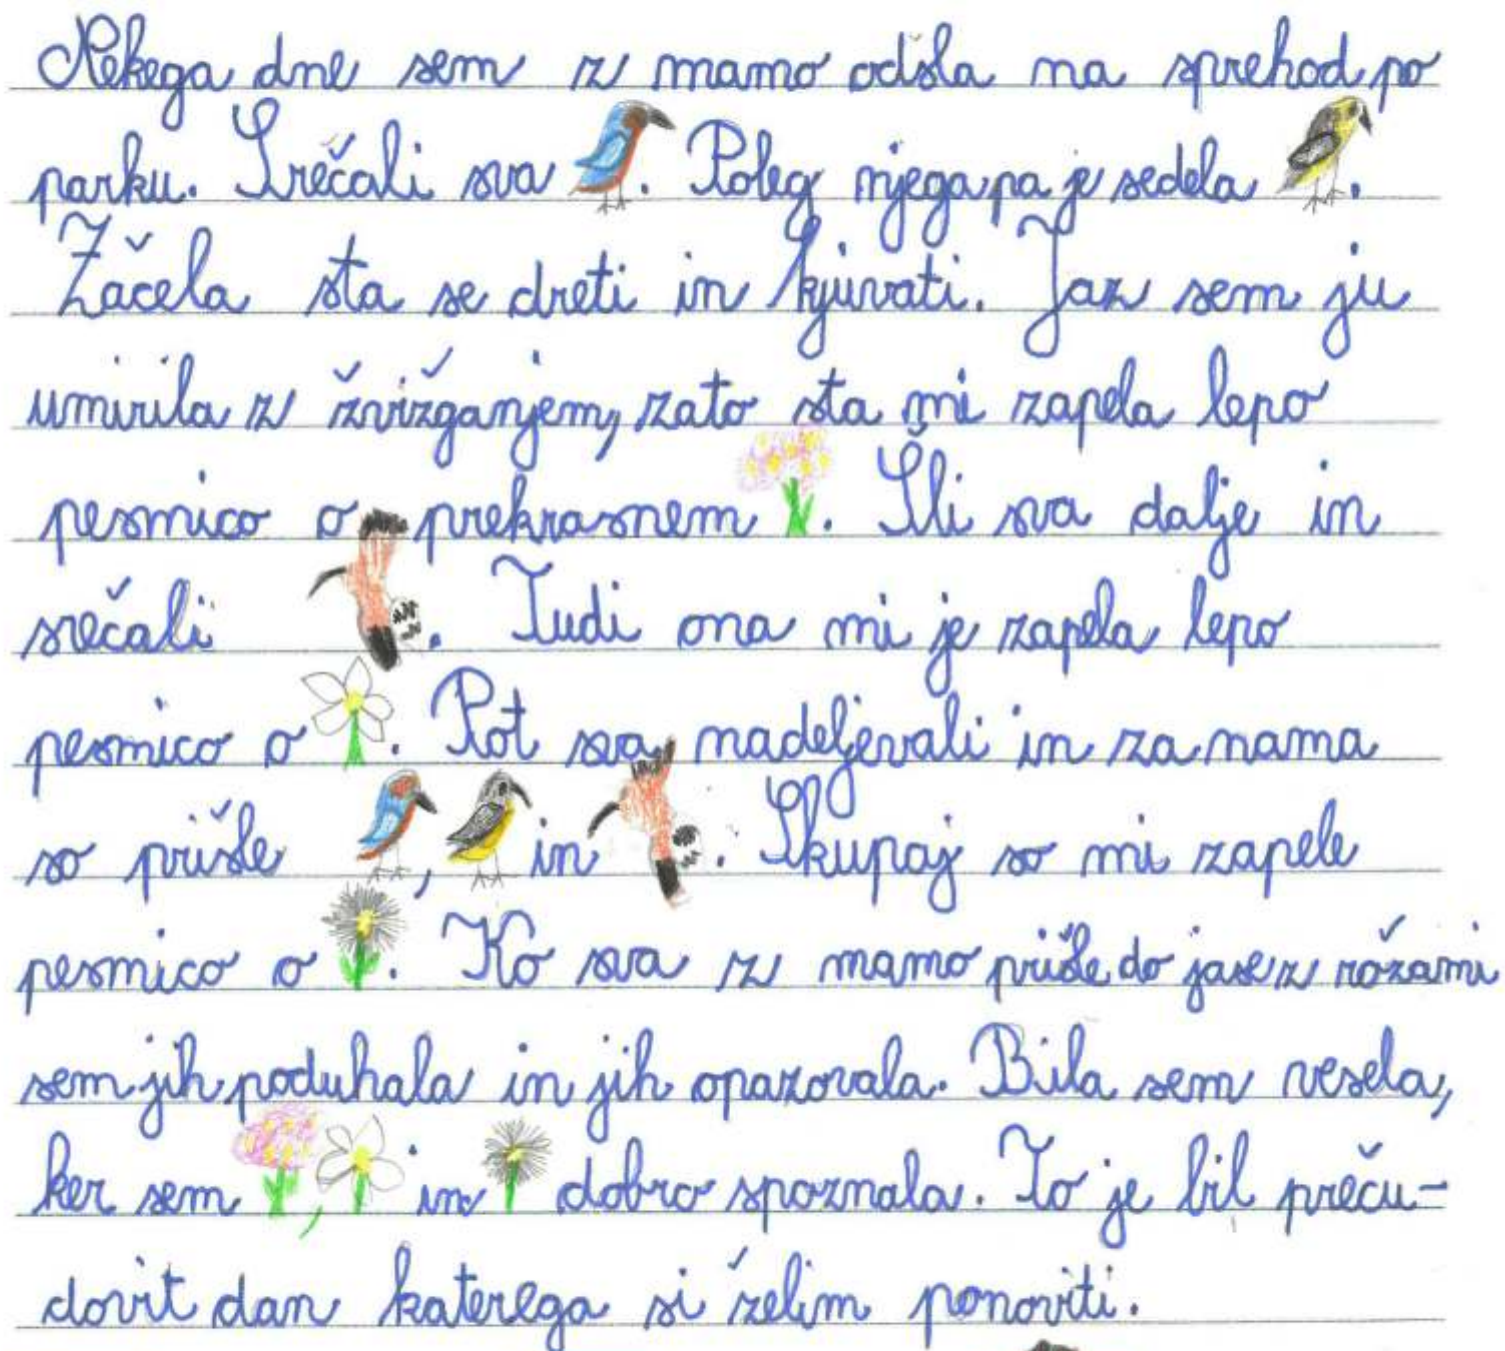 Nekega dne sem z mamo odšla na sprehod po
parku. Srečali sva . Poleg njega pa je sedela .
Začela sta se dreti in kjuvati. Jaz sem ju
umirila z žvižganjem, zato sta mi zapela lepo
pesmico o prekrasnem . Šli sva dalje in
srečali . Tudi ona mi je zapela lepo
pesmico o . Pot sva nadeljevali in za nama
so prišle , in . Skupaj so mi zapele
pesmico o . Ko sva z mamo prišle do jase z rožami
sem jih poduhala in jih opazovala. Bila sem vesela,
ker sem , in dobro spoznala. To je bil preču-
dovit dan katerega si želim ponoviti.